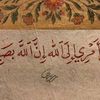 أمري إلى الله إن الله بص